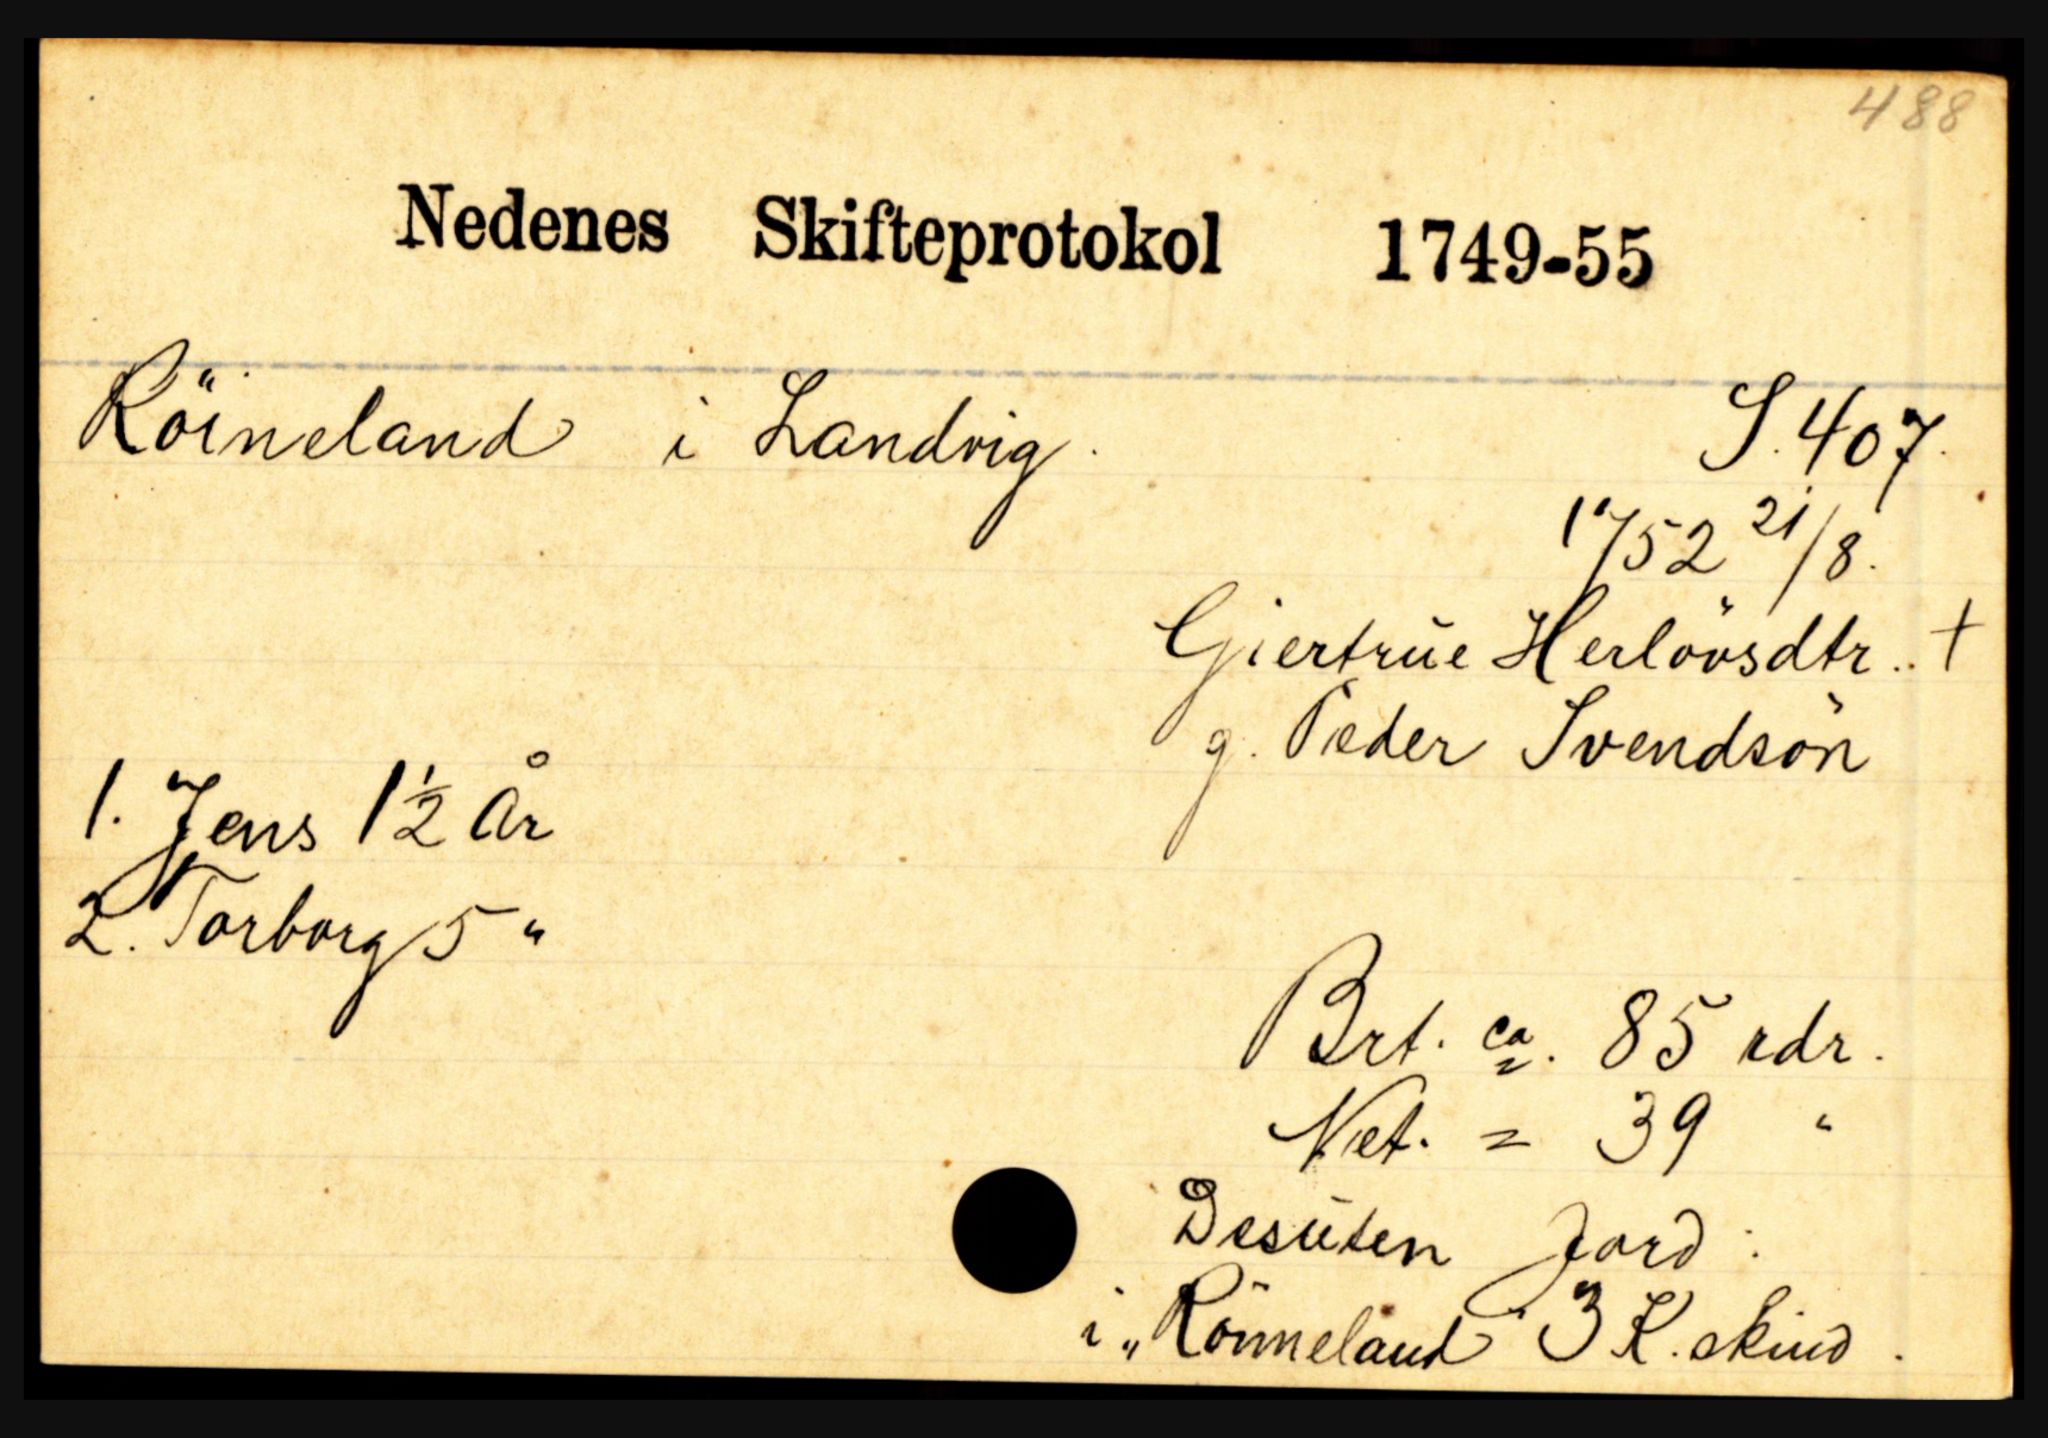 488
Nedenes Skifteprotokol 1749-55
Röineland i Landvig.
S. 407.
1752 21/8.
Giertrue Herlövsdtr.. +
g. Peder Svendsön
1. Jens 1 1/2 År
2. Torborg 5 "
Brt. ca. 85 rdr.
Net. = 39 "
Desuten Jord :
i „Rönneland" 3 K. skind.